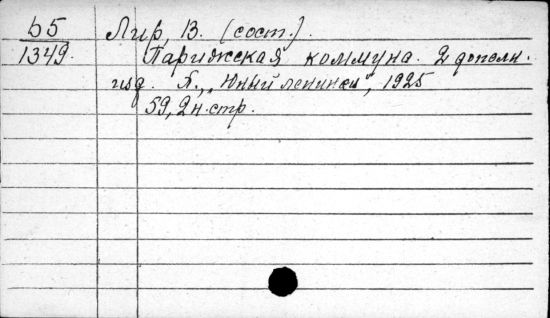 Б5 Лир, В. (сост.).
1349. Парижская коммуна. 2 дополн.
изд. Л., „Юный ленинец“, 1925
59, 2 н. стр.